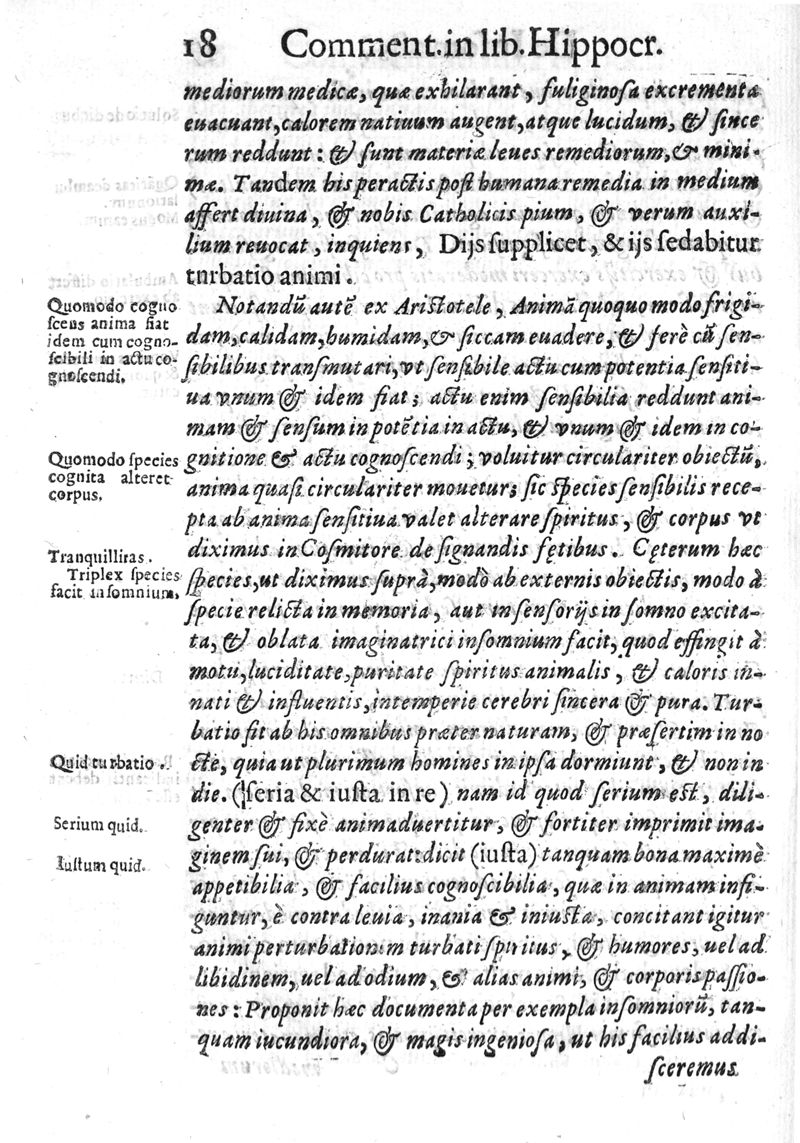 18 Comment. in lib. Hippocr.
mediorum medicæ, quæ exhilarant, fuliginoſa excrementa
euacuant, calorem natiuum augent, atque lucidum, & ſince
rum reddunt: & ſunt materiæ leues remediorum, & mini-
mæ. Tandem his peractis poſt humana remedia in medium
affert diuina, & nobis Catholicis pium, & verum auxi-
lium reuocat, inquiens, Dijs ſupplicet, & ijs ſedabitur
turbatio animi.
Quomodo cogno
ſcens anima fiat
idem cum cogno-
ſcibili in actu co-
gnoſcendi.
Notandũ autẽ ex Ariſtotele, Animã quoquo modo frigi-
dam, calidam, humidam, & ſiccam euadere, & ferè cũ ſen-
ſibilibus tranſmutari, vt ſenſibile actu cum potentia ſenſiti-
ua vnum & idem fiat; actu enim ſenſibilia reddunt ani-
mam & ſenſum in potẽtia in actu, & vnum & idem in co-
Quomodo ſpecies
cognita alteret
corpus.
gnitione & actu cognoſcendi; voluitur circulariter obiectũ,
anima quaſi circulariter mouetur; ſic ſpecies ſenſibilis rece-
pta ab anima ſenſitiua valet alterare ſpiritus, & corpus vt
Tranquilliras.
Triplex ſpecies
facit inſomnium.
diximus in Coſmitore de ſignandis fętibus. Cęterum hæc
ſpecies, ut diximus ſuprà, modò ab externis obiectis, modo à
ſpecie relicta in memoria, aut in ſenſorijs in ſomno excita-
ta, & oblata imaginatrici inſomnium facit, quod effingit à
motu, luciditate, puritate ſpiritus animalis, & caloris in-
nati & influentis, intemperie cerebri ſincera & pura. Tur-
batio fit ab his omnibus præter naturam, & præſertim in no
Quid turbatio.
cte, quia ut plurimum homines in ipſa dormiunt, & non in
die. (ſeria & iuſta in re) nam id quod ſerium eſt, dili-
Serium quid.
genter & fixè animaduertitur, & fortiter imprimit ima-
Iuſtum quid.
ginem ſui, & perdurat: dicit (iuſta) tanquam bona maximè
appetibilia, & facilius cognoſcibilia, quæ in animam infi-
guntur, è contra leuia, inania & iniuſta, concitant igitur
animi perturbationem turbati ſpiritus, & humores, uel ad
libidinem, uel ad odium, & alias animi, & corporis paſſio-
nes: Proponit hæc documenta per exempla inſomniorũ, tan-
quam iucundiora, & magis ingenioſa, ut his facilius addi-
ſceremus